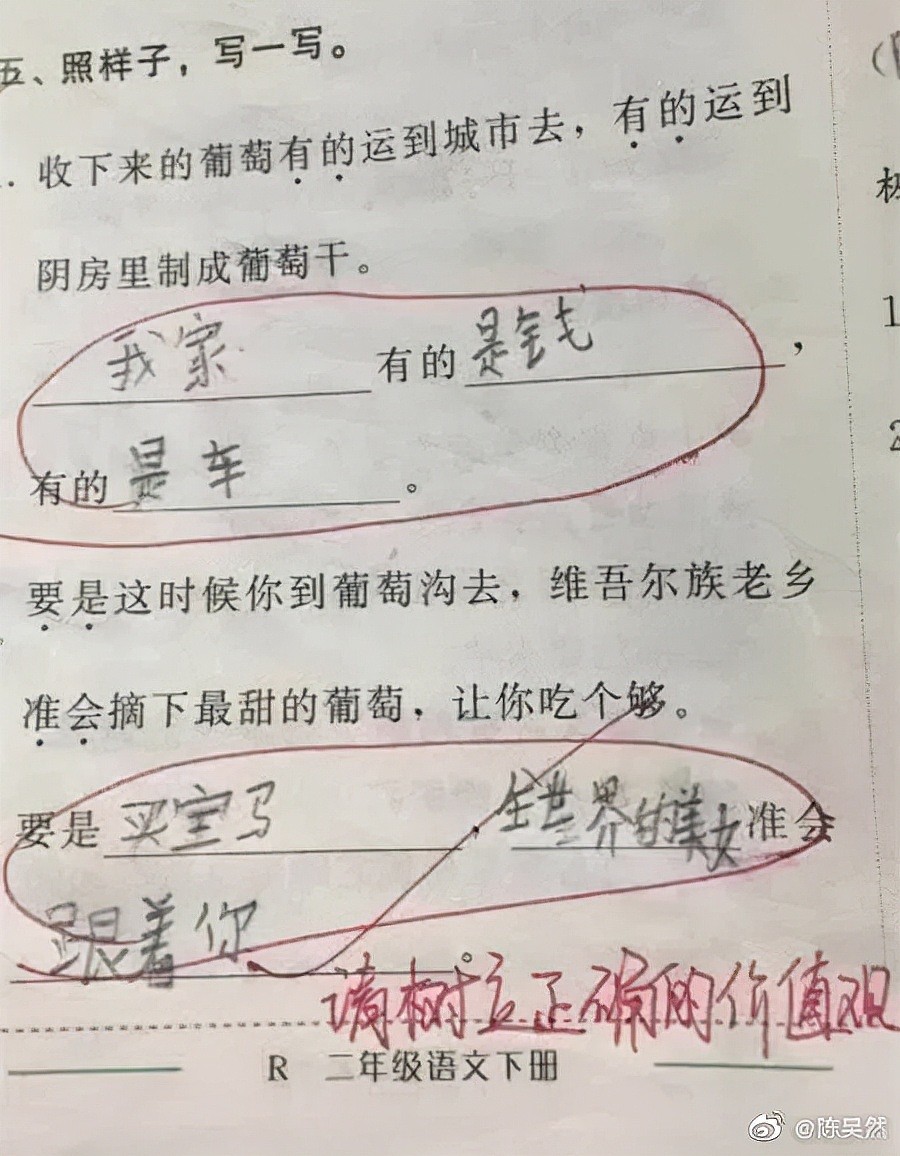 五、照样子，写一写。
收下来的葡萄有的运到城市去，有的运到
阴房里制成葡萄干。
我家有的是钱，
有的是车。
要是这时候你到葡萄沟去，维吾尔族老乡
准会摘下最甜的葡萄，让你吃个够。
要是买宝马 全世界的美女准会
跟着你。
请树立正确的价值观
R 二年级语文下册
1
2
@陈吴然